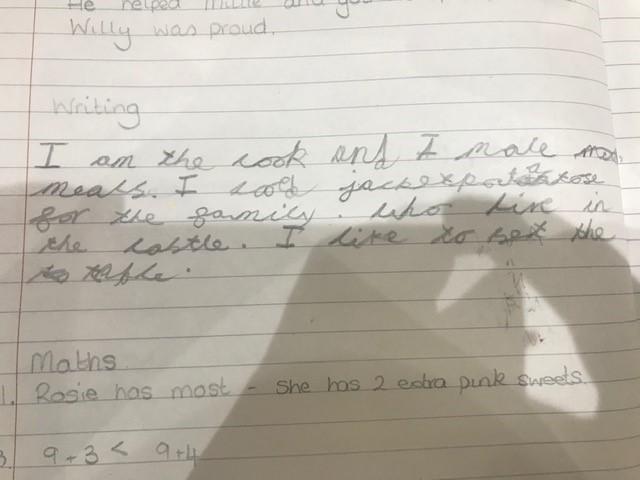 He helped Millie and
Willy was proud.
Writing
I am the cook and I make
meals. I cook
for the family. who live in
the castle. I like to set the
table.
Maths
1. Rosie has most - She has 2 extra pink sweets.
3. 9+3 < 9+4